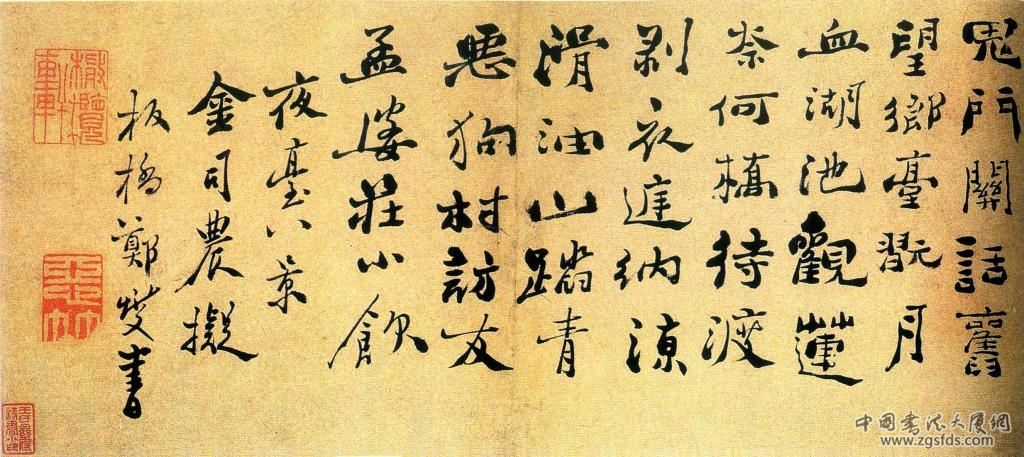 鬼門關話舊
望鄉臺翫月
血湖池觀蓮
柰何橋待渡
剥衣𨓍納涼
滑油山蹋青
惡狗村訪友
孟婆莊小飲
夜臺八景
金司農擬
板橋鄭燮書
橄欖軒
中国书法大厦網
www.zgsfds.com